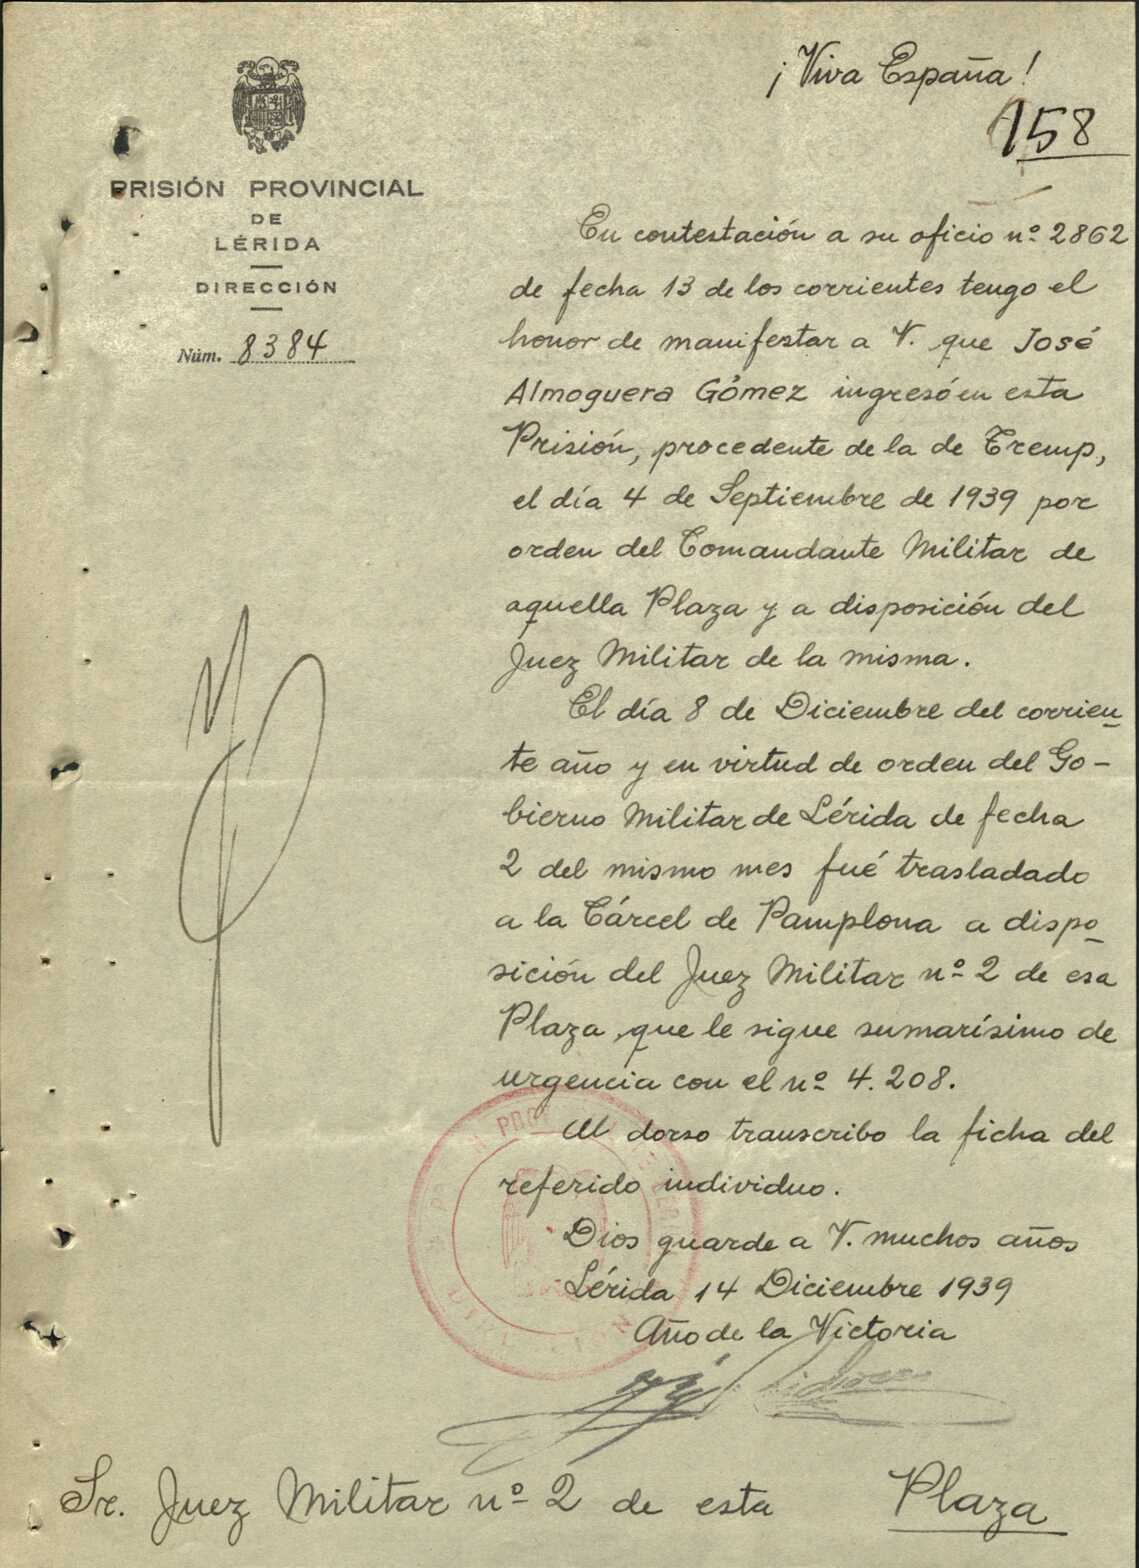 ¡Viva España!
158
PRISIÓN PROVINCIAL
DE
LÉRIDA
DIRECCIÓN
Núm. 8384
En contestación a su oficio nº 2862
de fecha 13 de los corrientes tengo el
honor de manifestar a V. que José
Almoguera Gómez ingresó en esta
Prisión, procedente de la de Tremp,
el día 4 de Septiembre de 1939 por
orden del Comandante Militar de
aquella Plaza y a disposición del
Juez Militar de la misma.
El día 8 de Diciembre del corrien-
te año y en virtud de orden del Go-
bierno Militar de Lérida de fecha
2 del mismo mes fué trasladado
a la Cárcel de Pamplona a dispo-
sición del Juez Militar nº 2 de esa
Plaza, que le sigue sumarísimo de
urgencia con el nº 4.208.
Al dorso transcribo la ficha del
referido individuo.
Dios guarde a V. muchos años
Lérida 14 Diciembre 1939
Año de la Victoria
Sr. Juez Militar nº 2 de esta Plaza